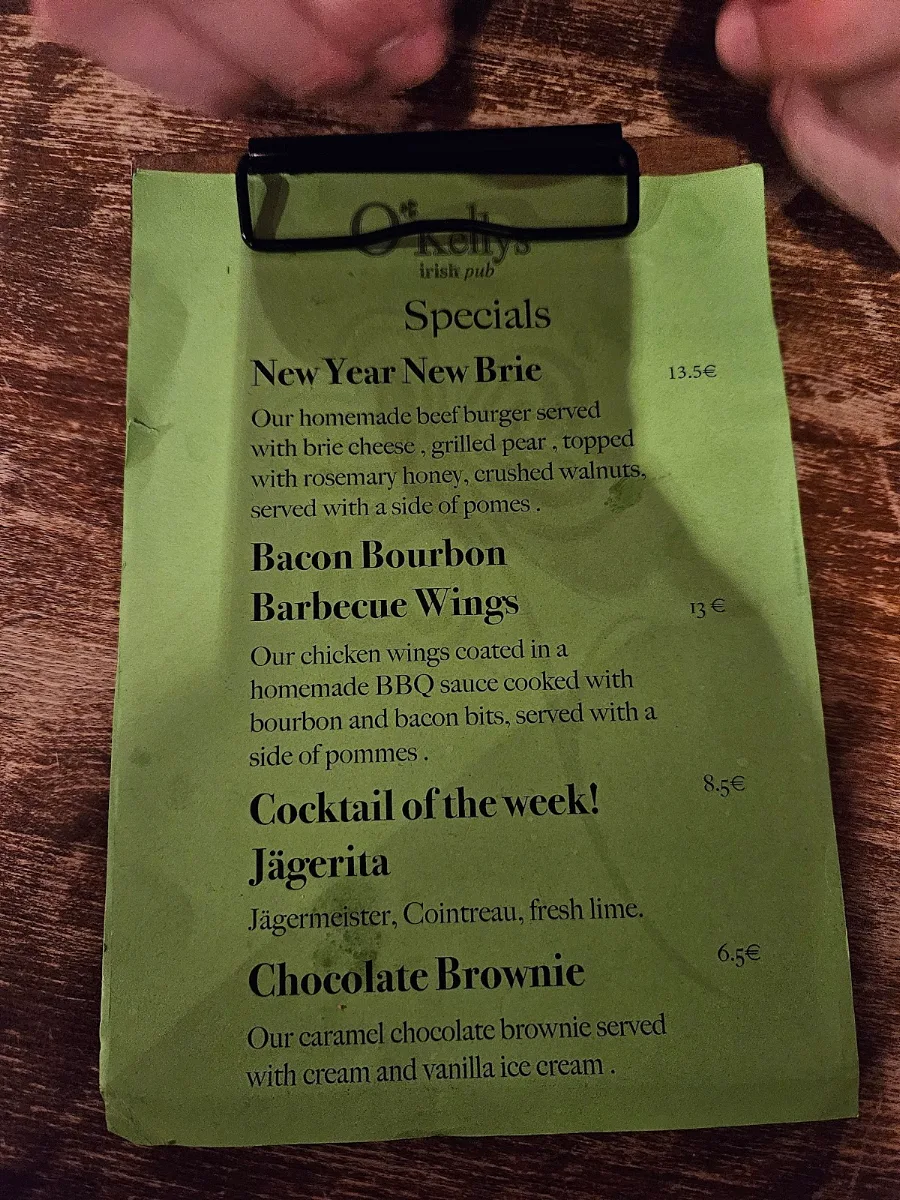 O'Kellys
irish pub
Specials
New Year New Brie 13.5€
Our homemade beef burger served
with brie cheese , grilled pear , topped
with rosemary honey, crushed walnuts,
served with a side of pomes .
Bacon Bourbon
Barbecue Wings 13 €
Our chicken wings coated in a
homemade BBQ sauce cooked with
bourbon and bacon bits, served with a
side of pommes .
Cocktail of the week! 8.5€
Jägerita
Jägermeister, Cointreau, fresh lime.
Chocolate Brownie 6.5€
Our caramel chocolate brownie served
with cream and vanilla ice cream .